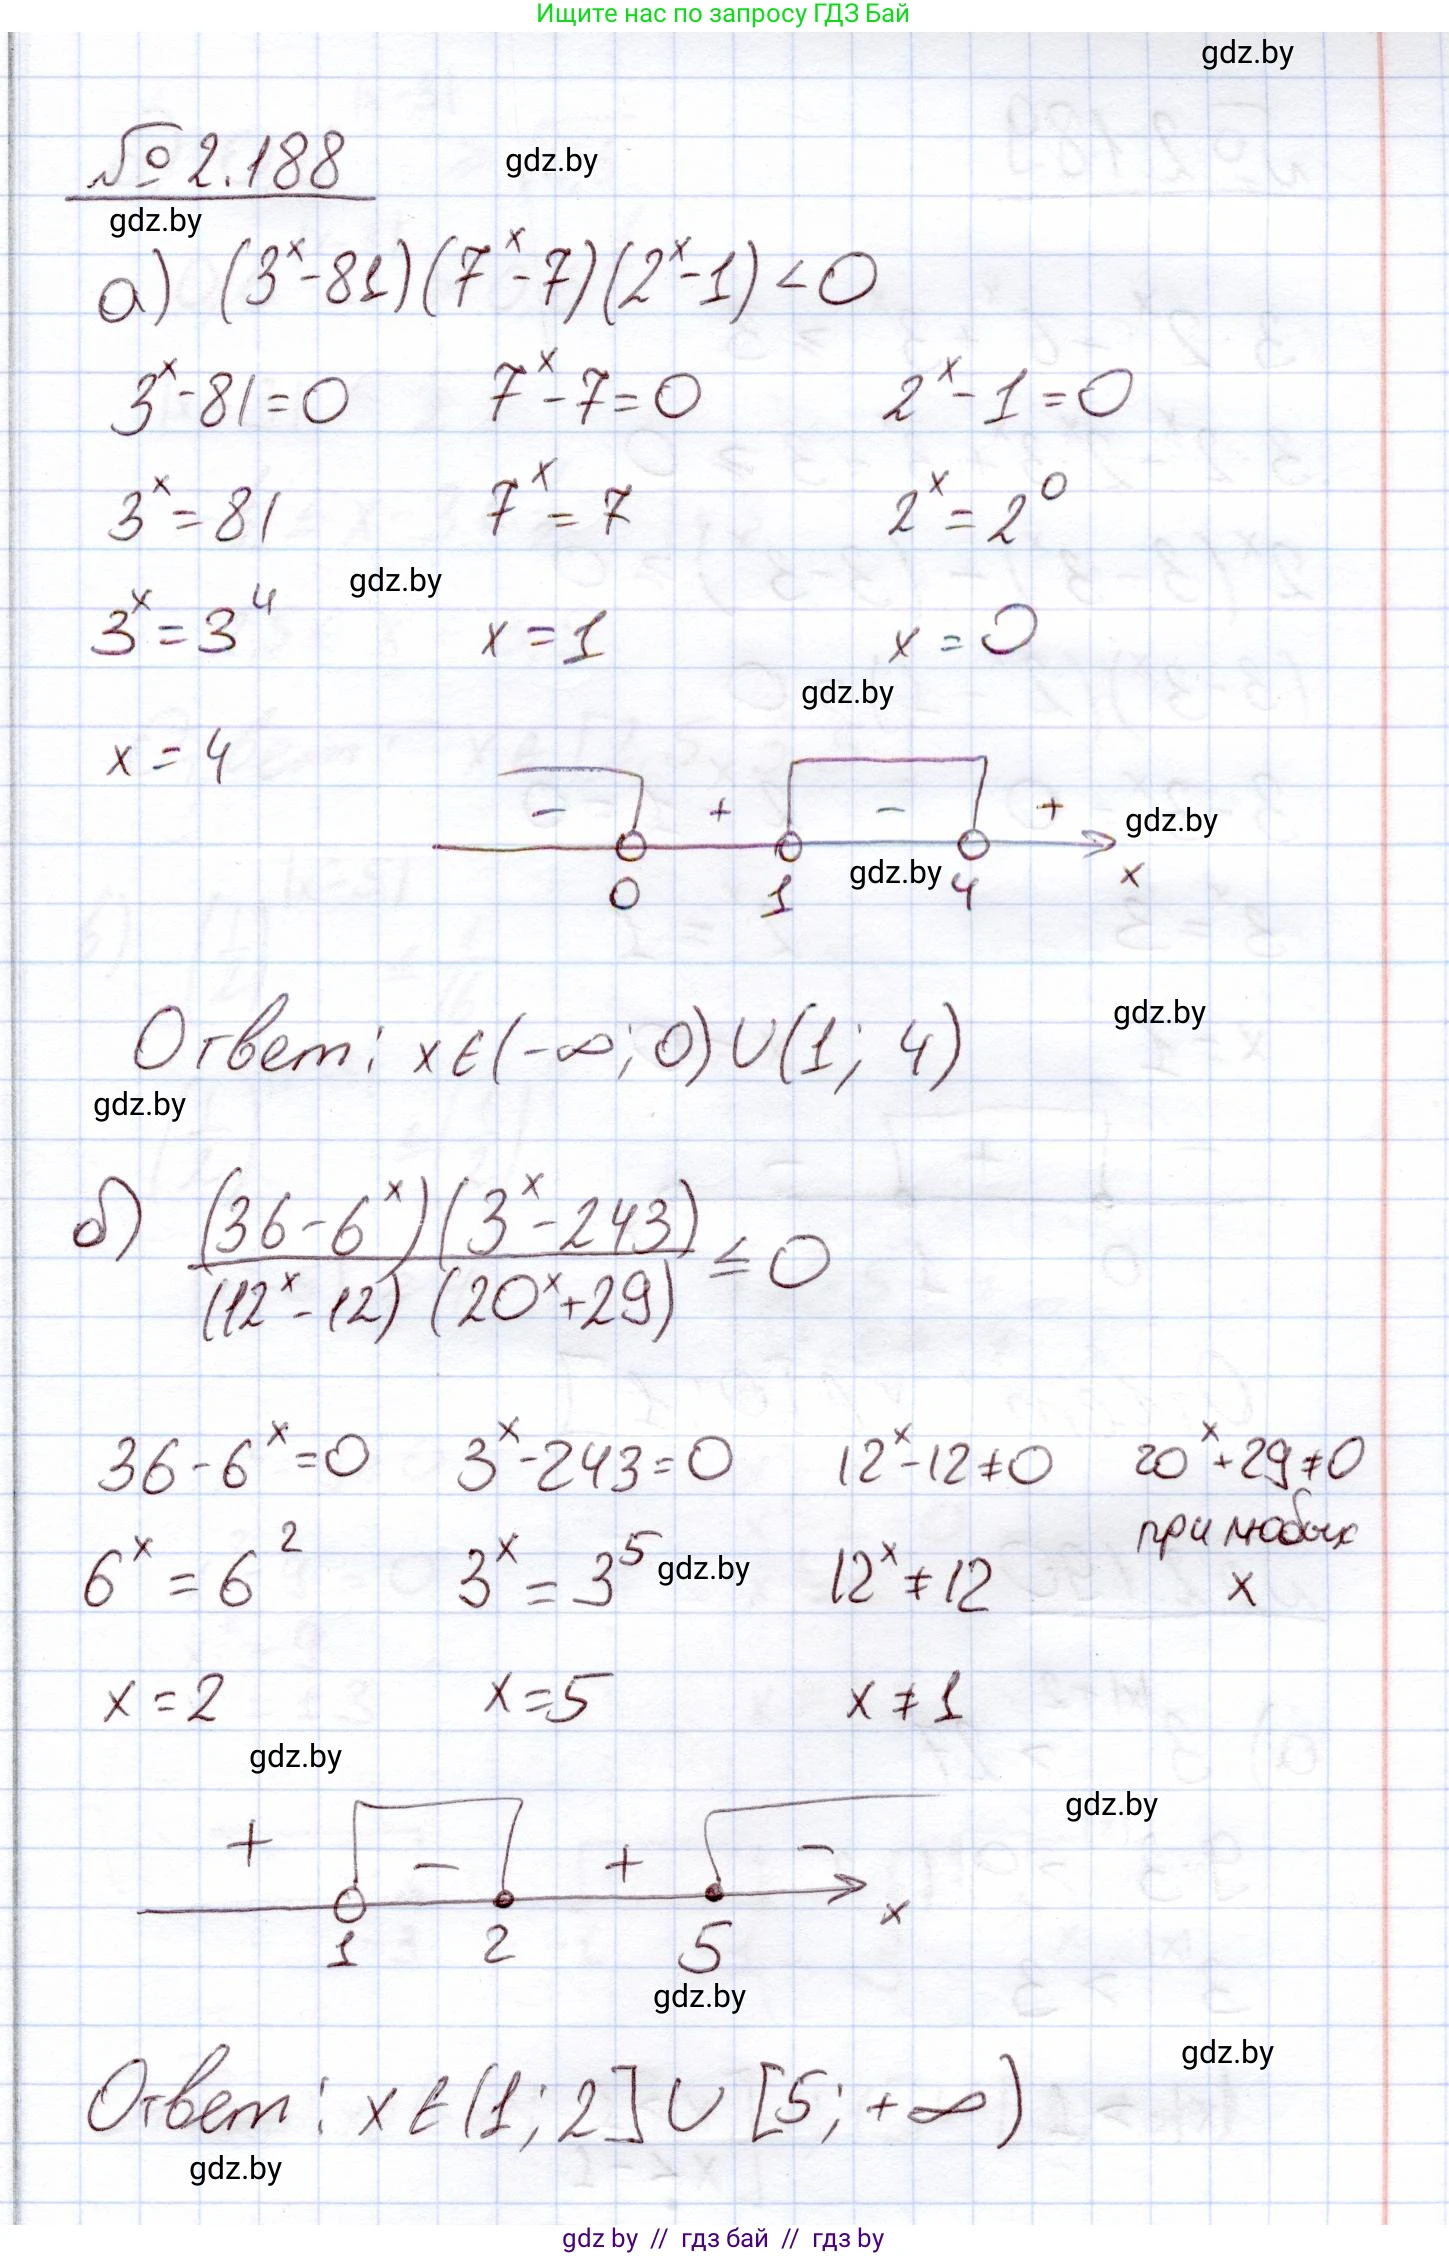 Ищите нас по запросу ГДЗ Бай
gdz.by
№ 2.188 gdz.by
gdz.by
а) (3ˣ-81)(7ˣ-7)(2ˣ-1)<0
3ˣ-81=0 7ˣ-7=0 2ˣ-1=0
3ˣ=81 7ˣ=7 2ˣ=2⁰
gdz.by
3ˣ=3⁴ x=1 x=0
gdz.by
x=4
- + - + gdz.by
gdz.by
0 1 4 x
gdz.by
Ответ: x∈(-∞;0)∪(1;4)
gdz.by
б) (36-6ˣ)(3ˣ-243) ≤0
(12ˣ-12)(20ˣ+29)
36-6ˣ=0 3ˣ-243=0 12ˣ-12≠0 20ˣ+29≠0
при любых
6ˣ=6² 3ˣ=3⁵ gdz.by 12ˣ≠12 x
x=2 x=5 x≠1
gdz.by
gdz.by
+ - + -
1 2 5 x
gdz.by
gdz.by
Ответ: x∈(1;2]∪[5;+∞)
gdz.by
gdz by // гдз бай // гдз by